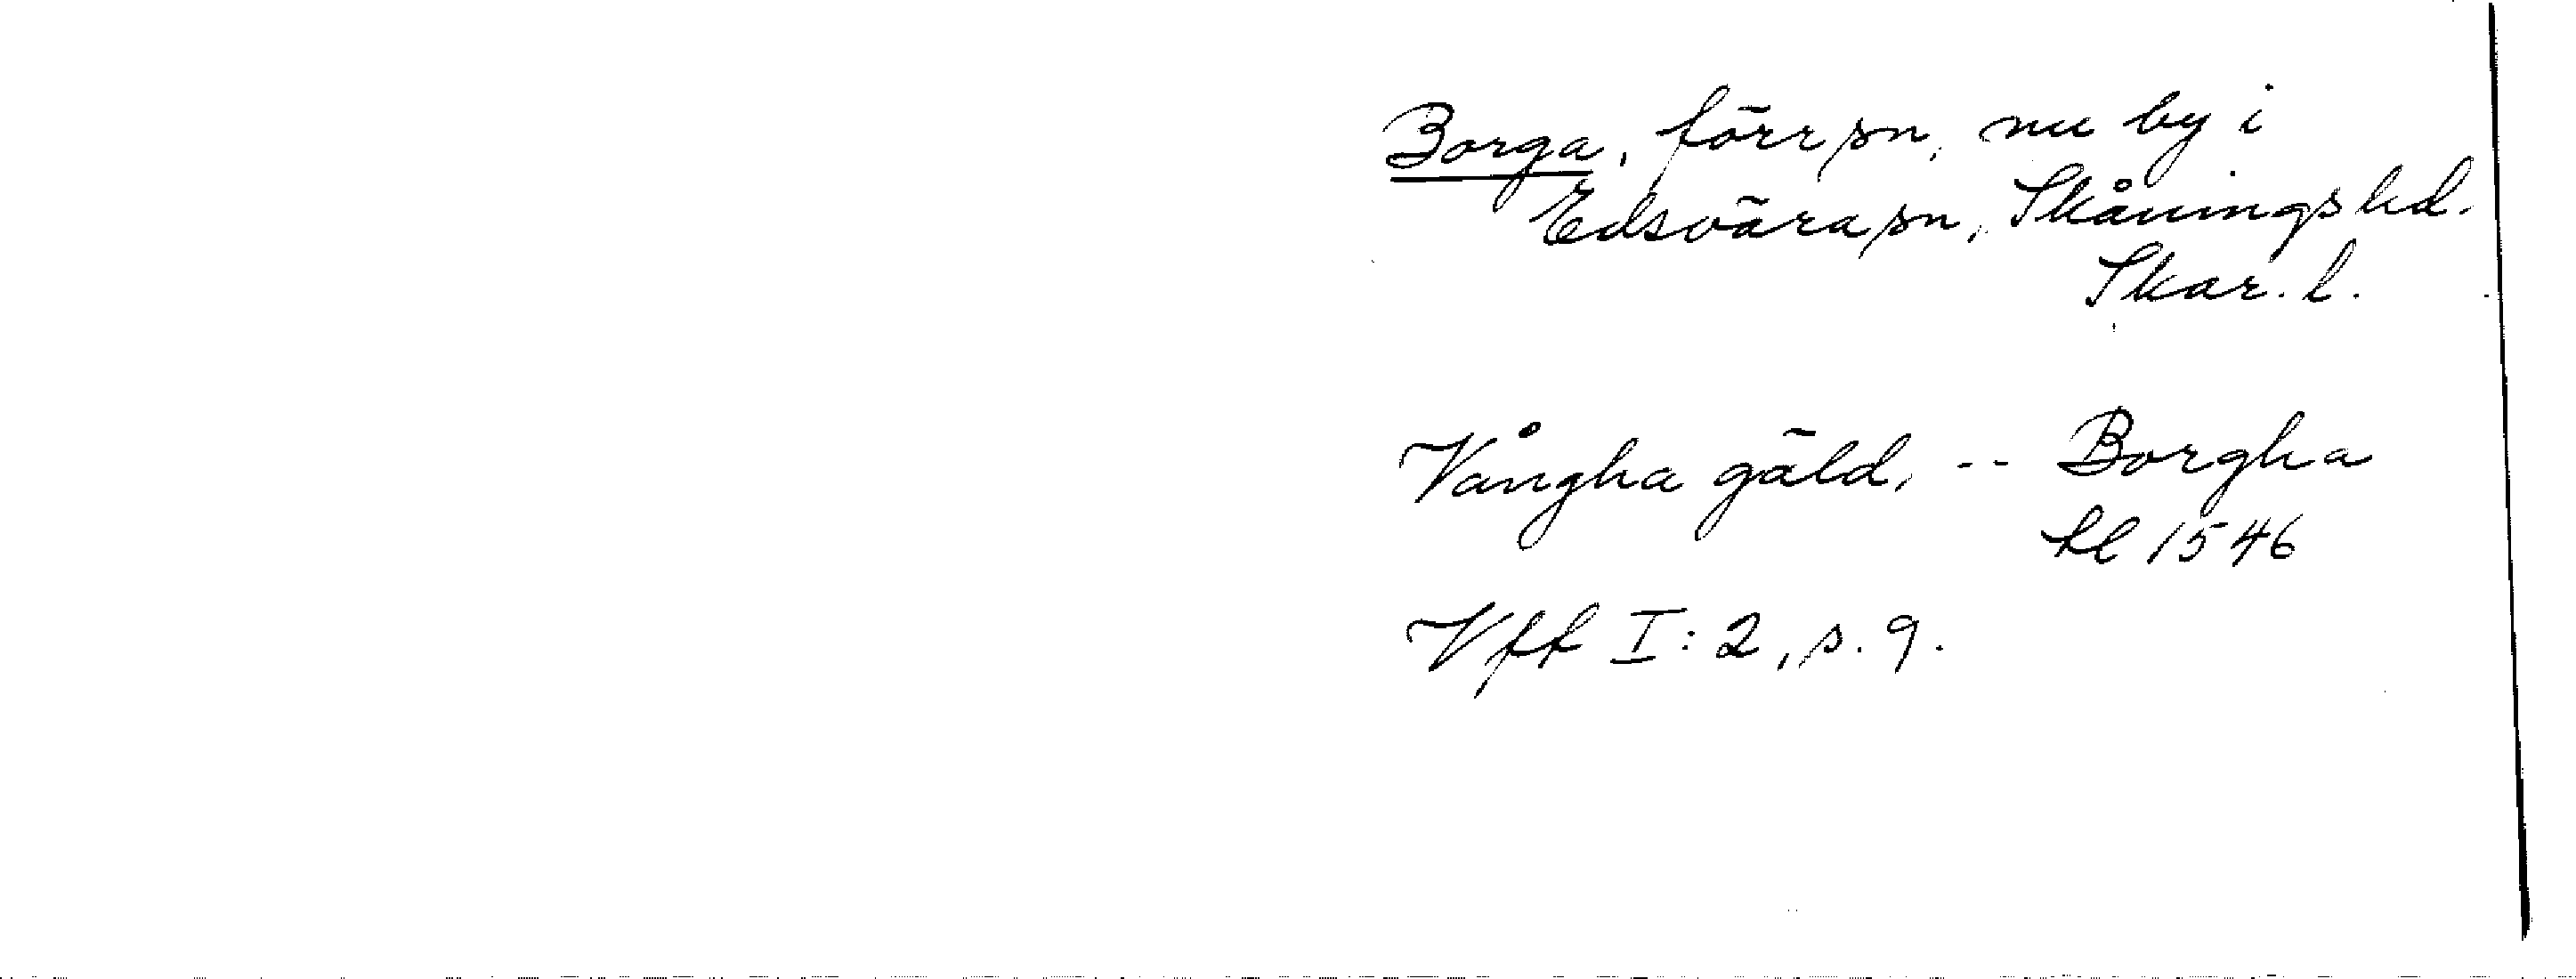 Borga, förr sn, nu by i
Edsvära sn, Skånings hd.
Skar. l.
Vångha gäld, -- Borgha
kl 1546
Vff I: 2, s. 9.